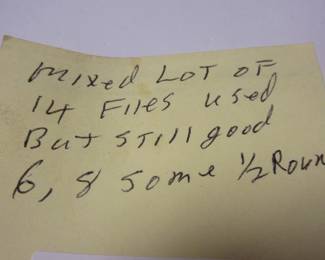 mixed LOT OF
14 Files used
But still good
6, 8 some 1/2 Roun